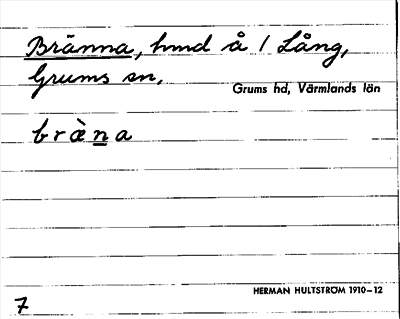 Bränna, hmd å / Lång,
Grums sn,
Grums hd, Värmlands län
bræ̀ṉa
HERMAN HULTSTRÖM 1910–12
7